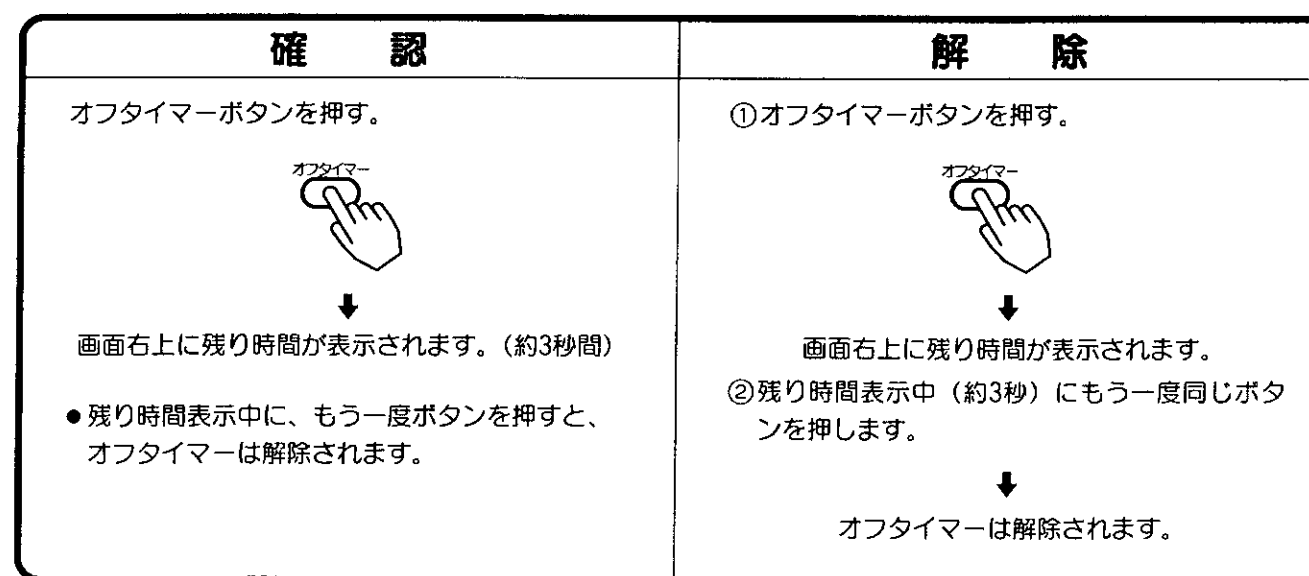 確認
オフタイマーボタンを押す。
オフタイマー
画面右上に残り時間が表示されます。(約3秒間)
●残り時間表示中に、もう一度ボタンを押すと、
オフタイマーは解除されます。
解除
①オフタイマーボタンを押す。
オフタイマー
画面右上に残り時間が表示されます。
②残り時間表示中(約3秒)にもう一度同じボタ
ンを押します。
オフタイマーは解除されます。